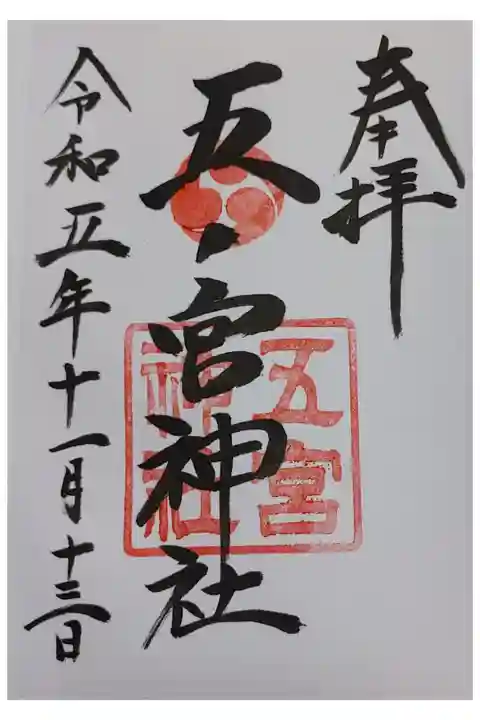 奉拝
五ノ宮神社
五宮
神社
令和五年十一月十三日